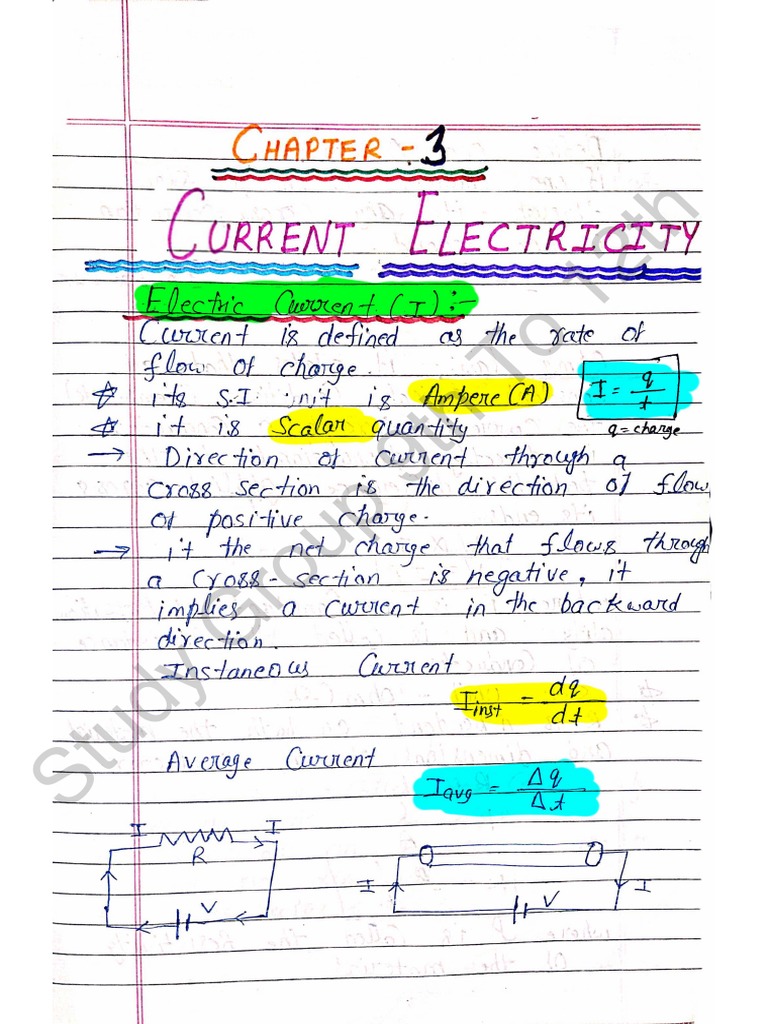 CHAPTER - 3
CURRENT ELECTRICITY
Electric Current (I) :-
Current is defined as the rate of
flow of charge.
its S.I unit is Ampere (A)
I = q/t
it is Scalar quantity
q = charge
→ Direction of current through a
cross section is the direction of flow
of positive charge.
→ if the net charge that flows through
a cross-section is negative, it
implies a current in the backward
direction.
Instaneous Current
I inst = dq/dt
Average Current
I avg = Δq/Δt
I
I
R
V
I
I
V
Study Group 9th To 12th